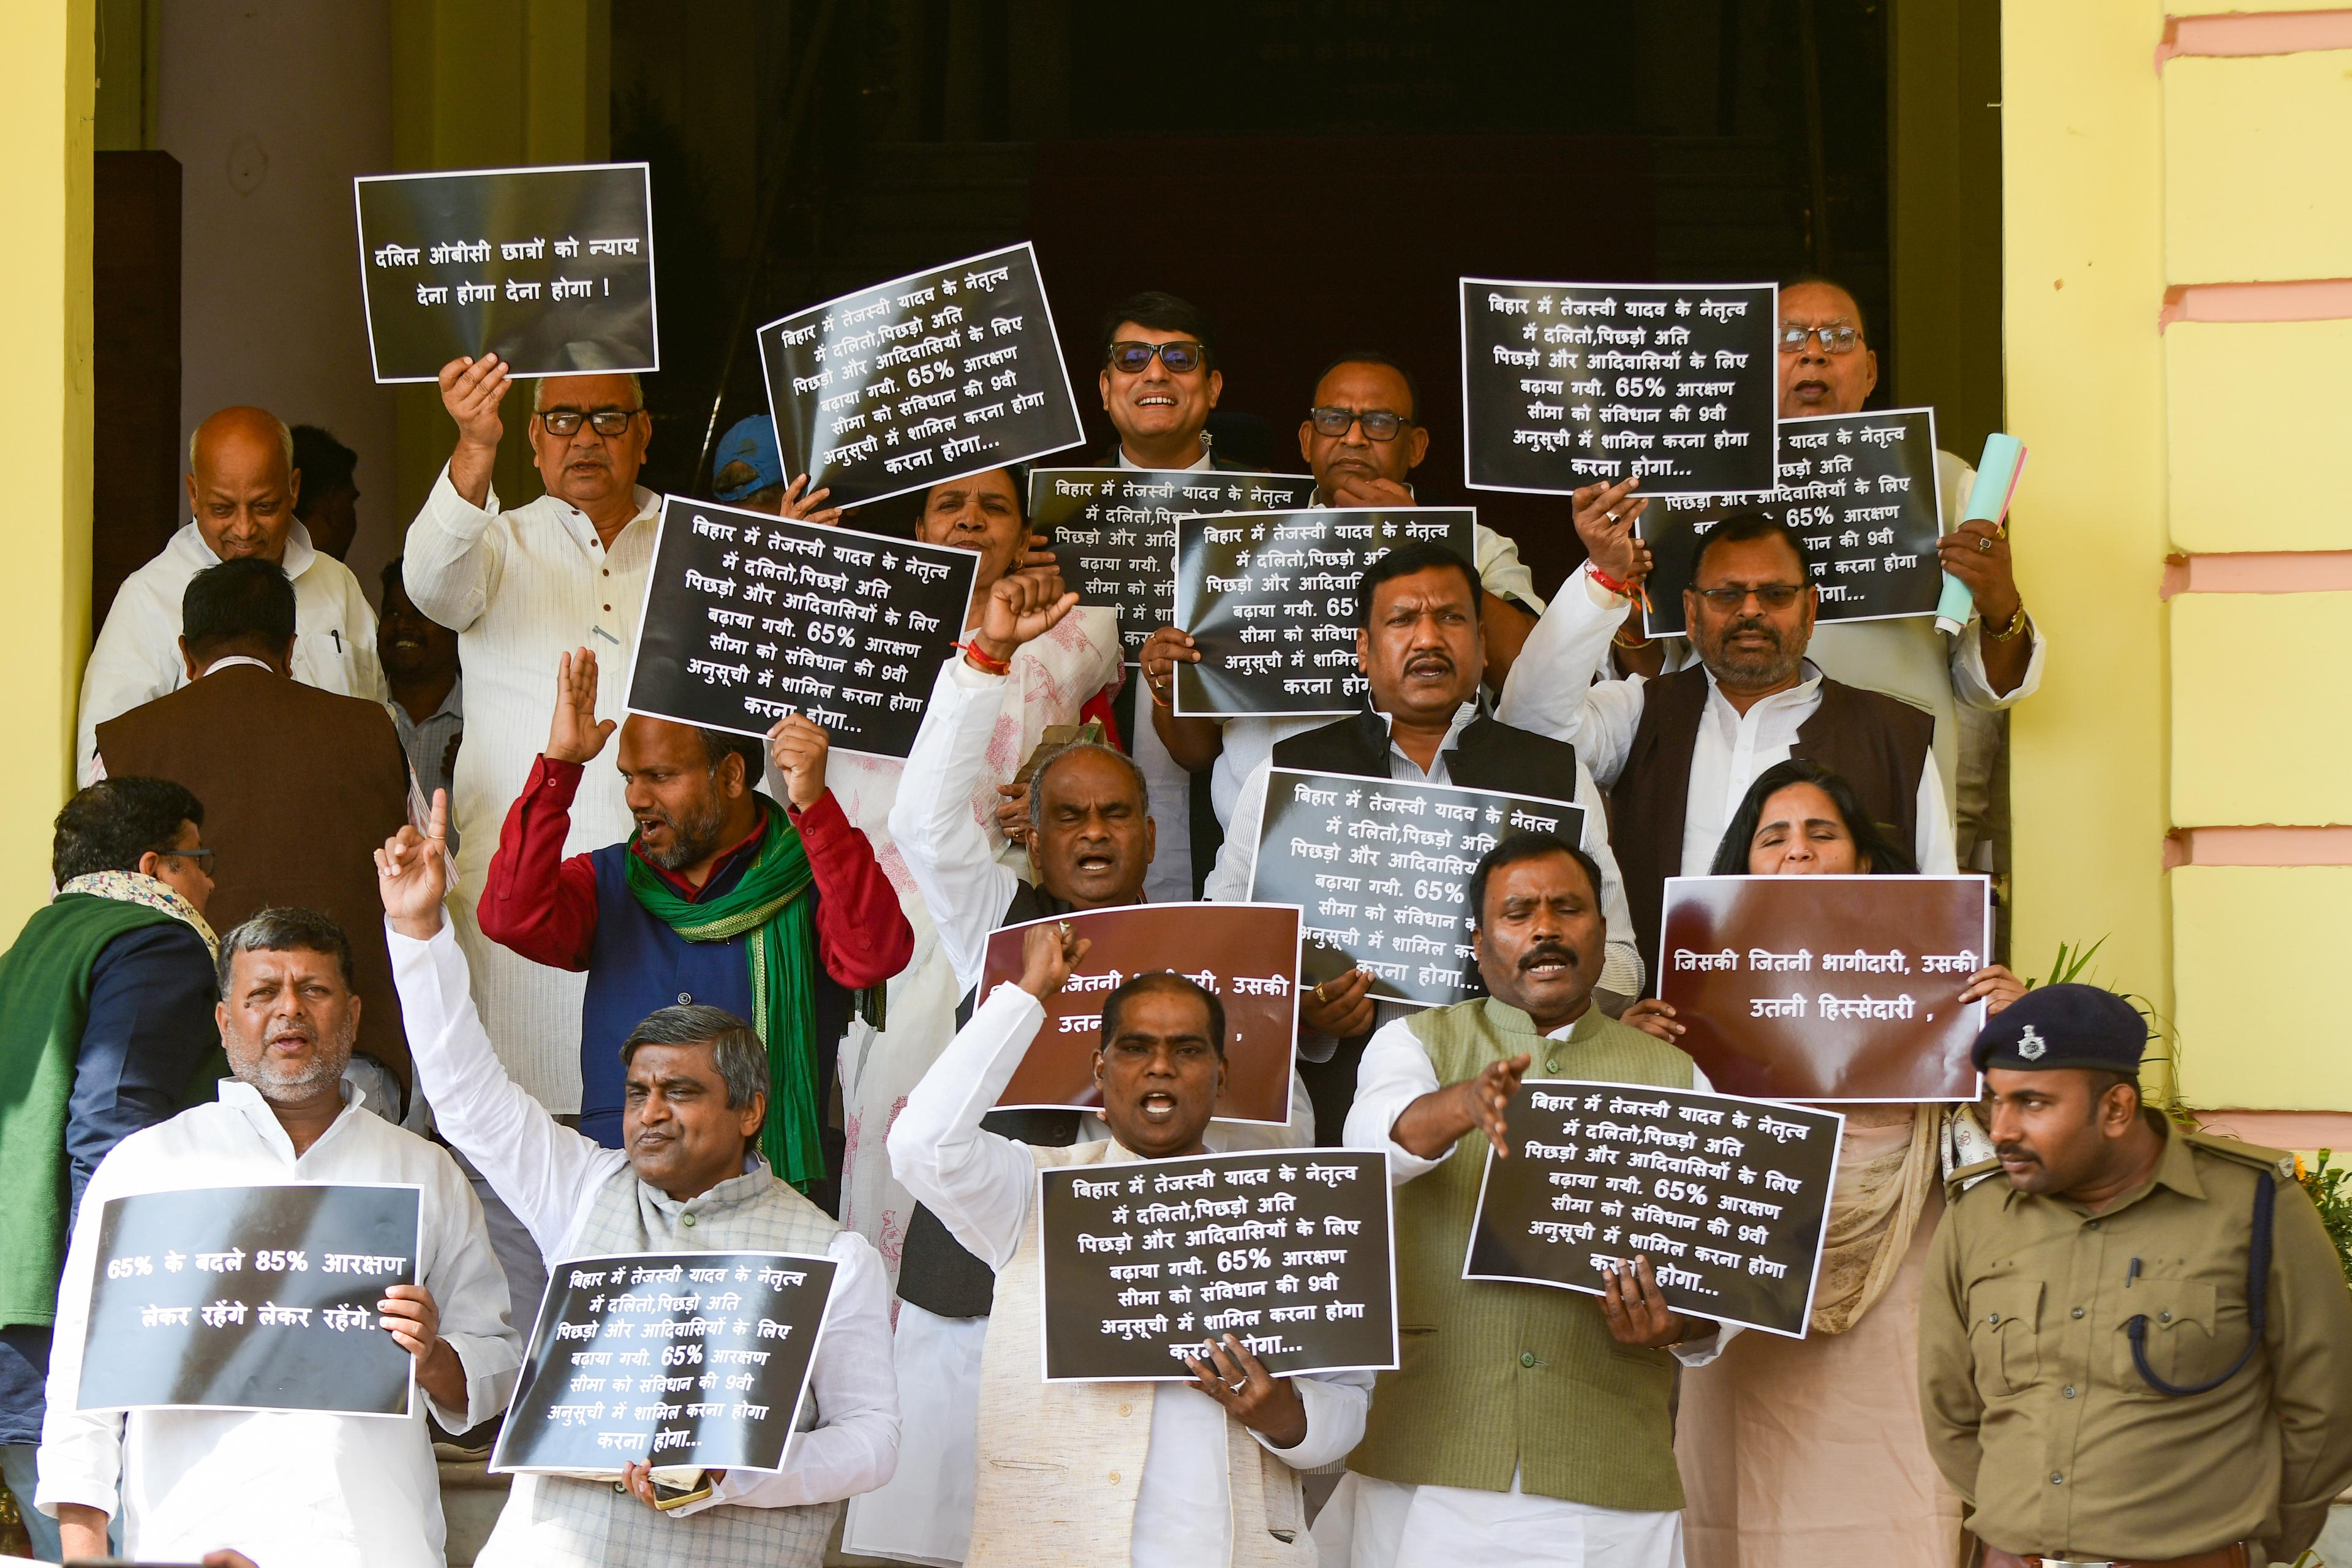 दलित ओबीसी छात्रों को न्याय
देना होगा देना होगा !
बिहार में तेजस्वी यादव के नेतृत्व
में दलितो,पिछड़ो अति
पिछड़ो और आदिवासियों के लिए
बढ़ाया गयी. 65% आरक्षण
सीमा को संविधान की 9वी
अनुसूची में शामिल करना होगा
करना होगा...
बिहार में तेजस्वी यादव के नेतृत्व
में दलितो,पिछड़ो अति
पिछड़ो और आदिवासियों के लिए
बढ़ाया गयी. 65% आरक्षण
सीमा को संविधान की 9वी
अनुसूची में शामिल करना होगा
करना होगा...
यादव के नेतृत्व
अति
पिछड़ो और आदिवासियों के लिए
65% आरक्षण
की 9वी
करना होगा
बिहार में तेजस्वी यादव के नेतृत्व
में
पिछड़ो और
बढ़ाया गयी.
सीमा को
में
बिहार में तेजस्वी यादव के नेतृत्व
में दलितो,पिछड़ो अति
पिछड़ो और आदिवासियों के लिए
बढ़ाया गयी. 65% आरक्षण
सीमा को संविधान की 9वी
अनुसूची में शामिल करना होगा
करना होगा...
बिहार में तेजस्वी यादव के नेतृत्व
में दलितो,पिछड़ो
पिछड़ो और
बढ़ाया गयी.
सीमा को
अनुसूची में
करना
बिहार में तेजस्वी यादव के नेतृत्व
में दलितो,पिछड़ो अति
पिछड़ो और
बढ़ाया गयी. 65%
सीमा को संविधान
अनुसूची में शामिल
करना होगा...
जिसकी जितनी भागीदारी, उसकी
उतनी हिस्सेदारी ,
जितनी उसकी
बिहार में तेजस्वी यादव के नेतृत्व
में दलितो,पिछड़ो अति
पिछड़ो और आदिवासियों के लिए
बढ़ाया गयी. 65% आरक्षण
सीमा को संविधान की 9वी
अनुसूची में शामिल करना होगा
होगा...
बिहार में तेजस्वी यादव के नेतृत्व
में दलितो,पिछड़ो अति
पिछड़ो और आदिवासियों के लिए
बढ़ाया गयी. 65% आरक्षण
सीमा को संविधान की 9वी
अनुसूची में शामिल करना होगा
होगा...
65% के बदले 85% आरक्षण
लेकर रहेंगे लेकर रहेंगे.
बिहार में तेजस्वी यादव के नेतृत्व
में दलितो,पिछड़ो अति
पिछड़ो और आदिवासियों के लिए
बढ़ाया गयी. 65% आरक्षण
सीमा को संविधान की 9वी
अनुसूची में शामिल करना होगा
करना होगा...